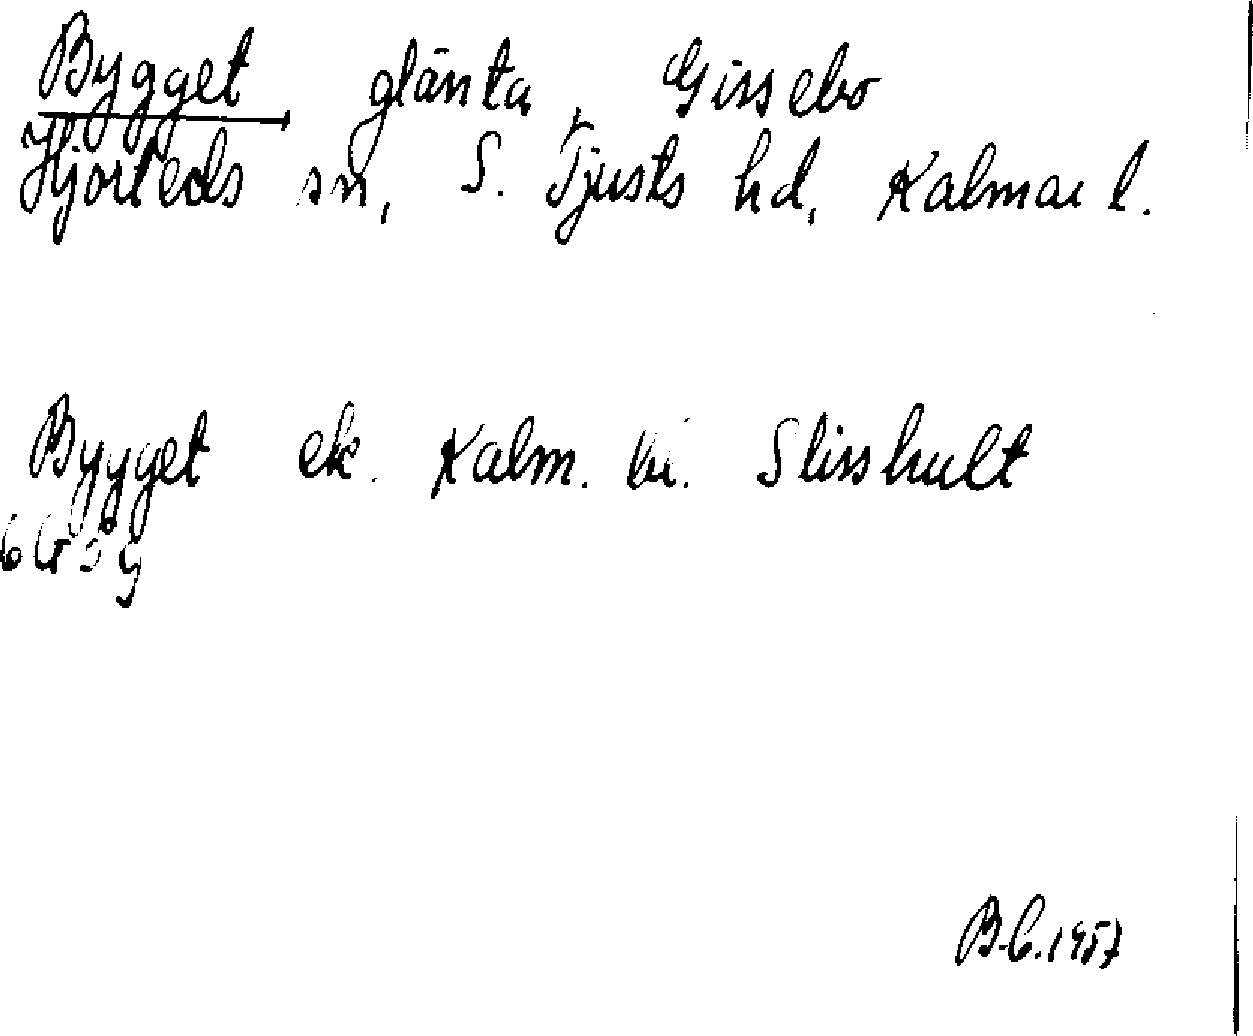 Bygget glänta, Gissebo
Hjorteds sn, S. Tjusts hd, Kalmar l.
Bygget ek. Kalm. bl. Slisshult
6G5g
B.C. 1957